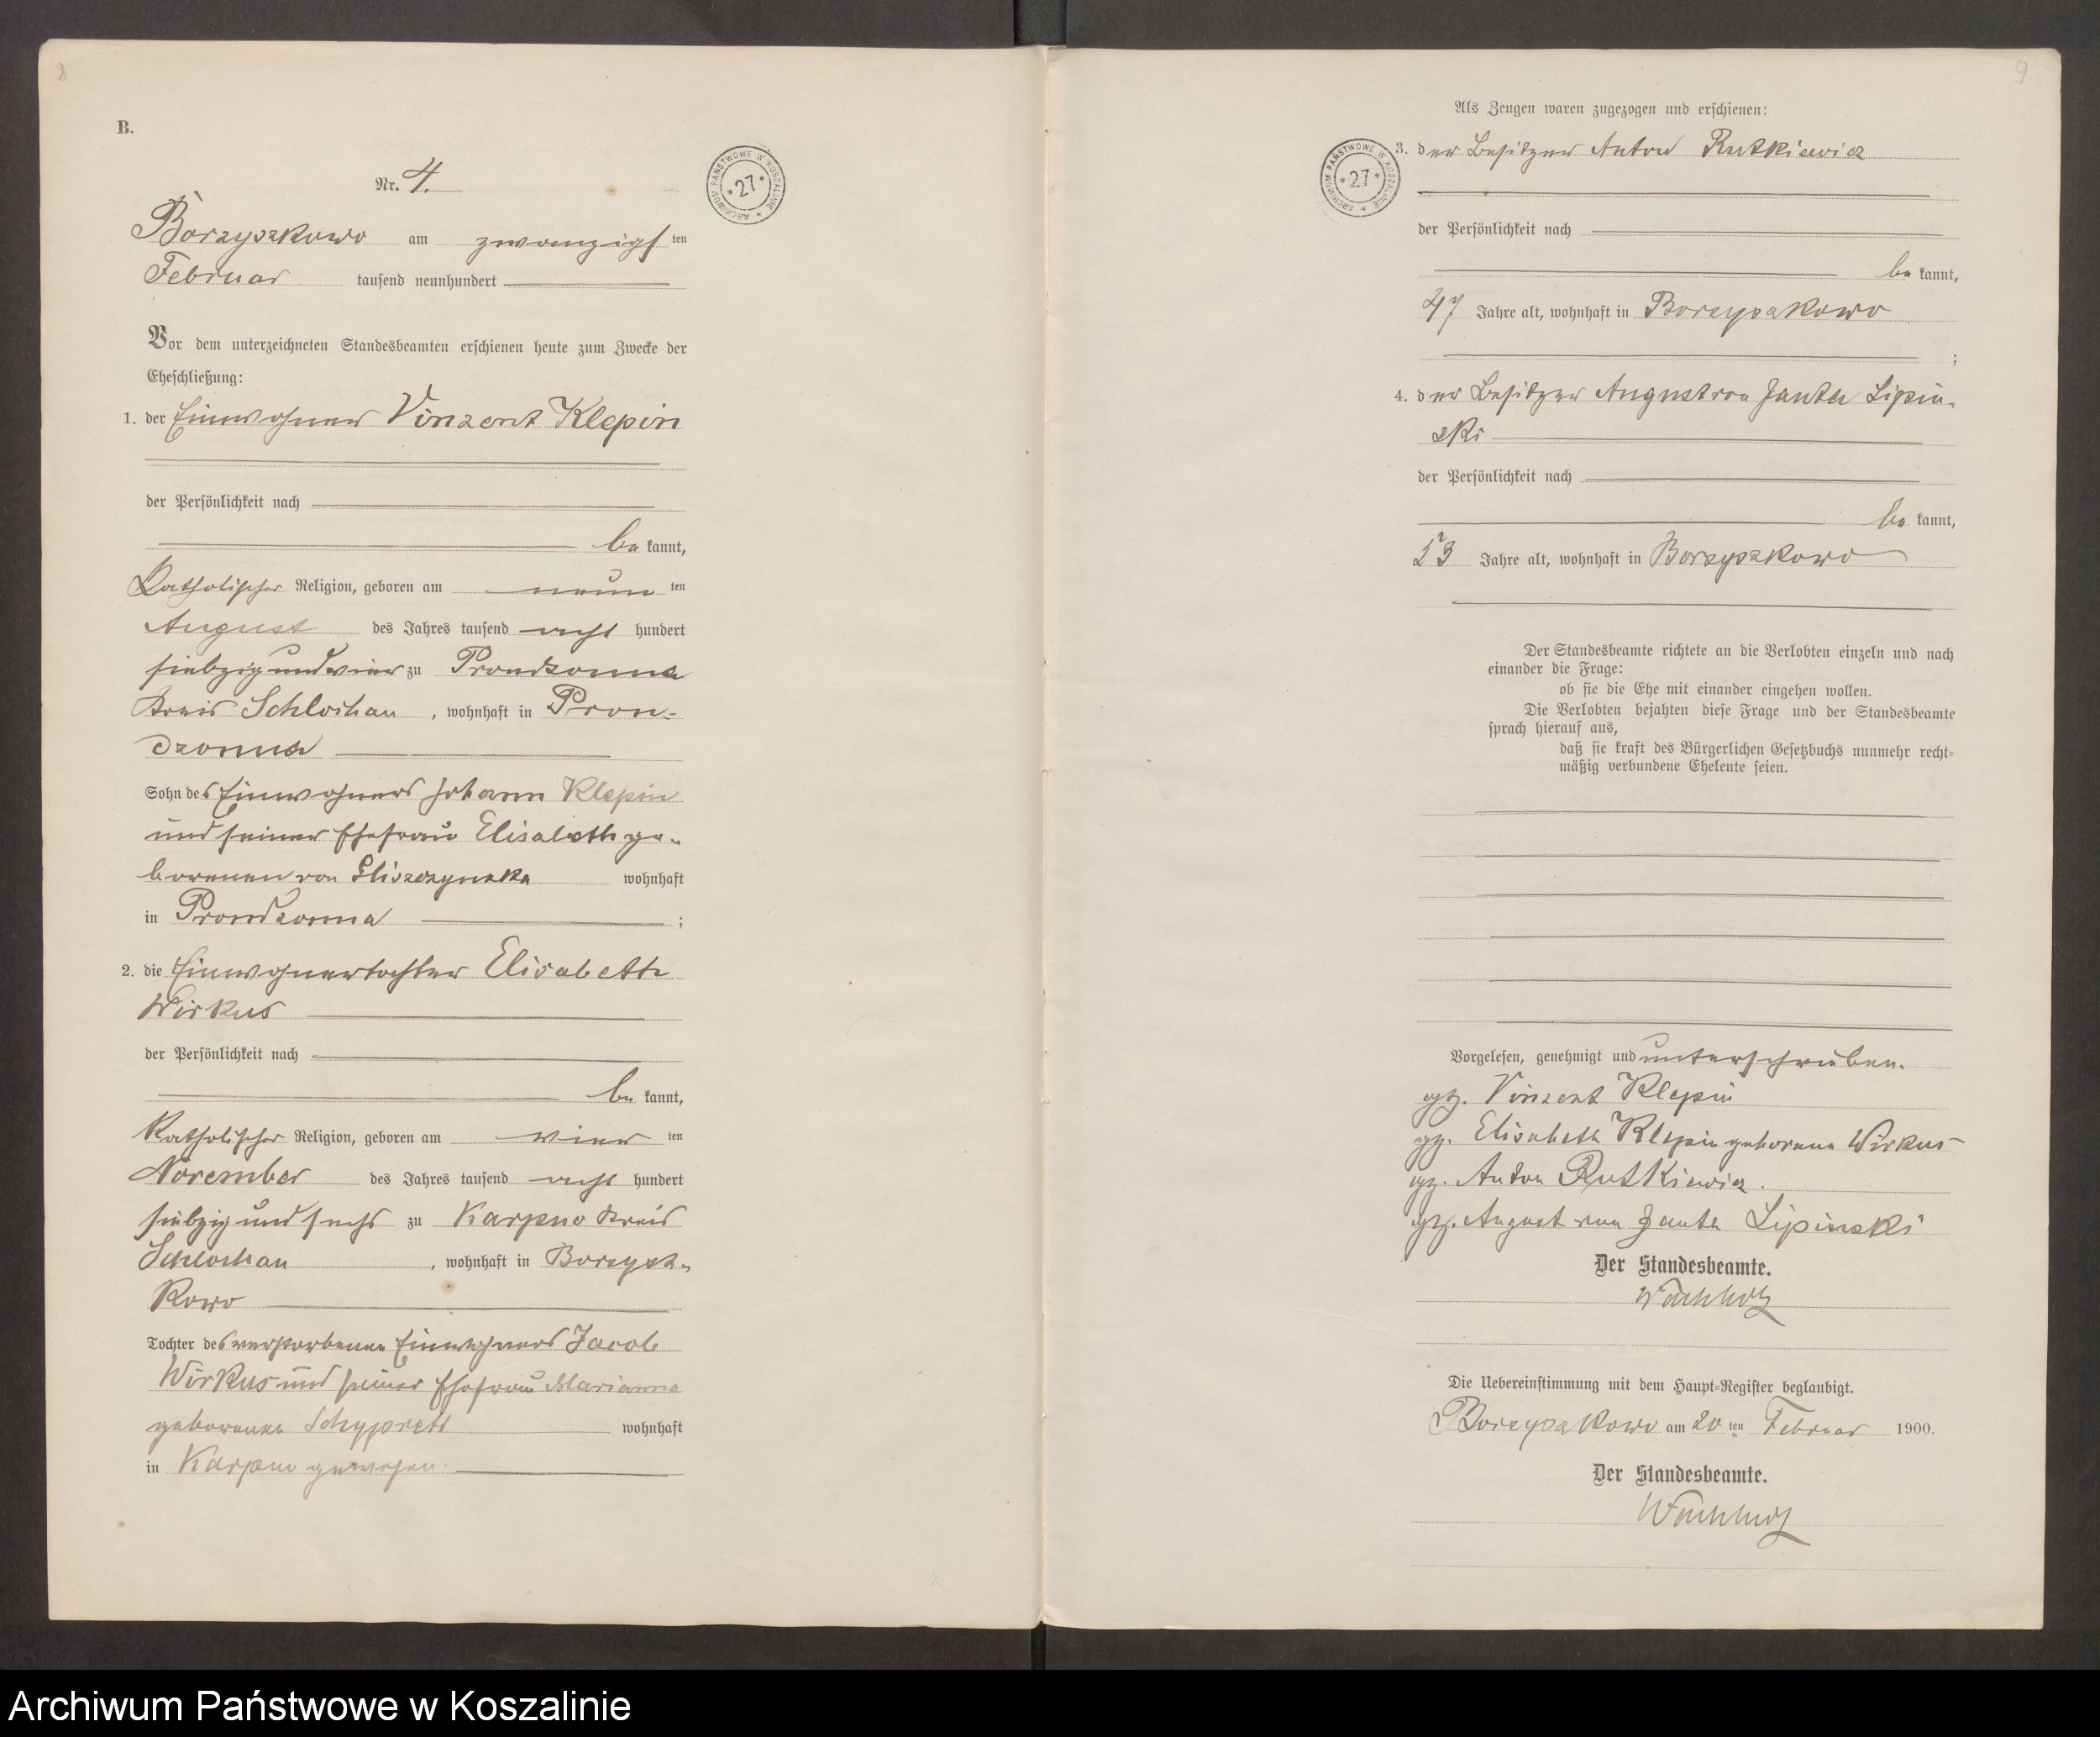 8
B.
Nr. 4.
ARCHIWUM PAŃSTWOWE W KOSZALINIE * 27 *
Borzyszkowo am zwanzigsten
Februar tausend neunhundert
Vor dem unterzeichneten Standesbeamten erschienen heute zum Zwecke der
Eheschließung:
1. der Einwohner Vinzent Klepin
der Persönlichkeit nach
bekannt,
Katholischer Religion, geboren am neunten
August des Jahres tausend acht hundert
siebzig und vier zu Prondzonna
Kreis Schlochau, wohnhaft in Pron-
dzonna
Sohn des Einwohners Johann Klepin
und seiner Ehefrau Elisabeth ge-
borenen von wohnhaft
in Prondzonna ;
2. die Einwohnertochter Elisabeth
Wirkus
der Persönlichkeit nach
bekannt,
Katholischer Religion, geboren am vierten
November des Jahres tausend acht hundert
siebzig und sechs zu Karpno Kreis
Schlochau, wohnhaft in Borzysz-
kowo
Tochter des verstorbenen Einwohners Jacob
Wirkus und seiner Ehefrau Marianna
geborenen wohnhaft
in Karpno gewesen.
9
Als Zeugen waren zugezogen und erschienen:
ARCHIWUM PAŃSTWOWE W KOSZALINIE * 27 *
3. der Besitzer Anton Rutkiewicz
der Persönlichkeit nach
bekannt,
47 Jahre alt, wohnhaft in Borzyszkowo
;
4. der Besitzer August von Janta Lipin-
ski
der Persönlichkeit nach
bekannt,
53 Jahre alt, wohnhaft in Borzyszkowo
Der Standesbeamte richtete an die Verlobten einzeln und nach
einander die Frage:
ob sie die Ehe mit einander eingehen wollen.
Die Verlobten bejahten diese Frage und der Standesbeamte
sprach hierauf aus,
daß sie kraft des Bürgerlichen Gesetzbuchs nunmehr recht-
mäßig verbundene Eheleute seien.
Vorgelesen, genehmigt und unterschrieben.
gz. Vinzent Klepin
gz. Elisabeth Klepin geborene Wirkus
gz. Anton Rutkiewicz.
gz. August von Janta Lipinski
Der Standesbeamte.
Wachholz
Die Uebereinstimmung mit dem Haupt-Register beglaubigt.
Borzyszkowo am 20ten Februar 1900.
Der Standesbeamte.
Wachholz
Archiwum Państwowe w Koszalinie